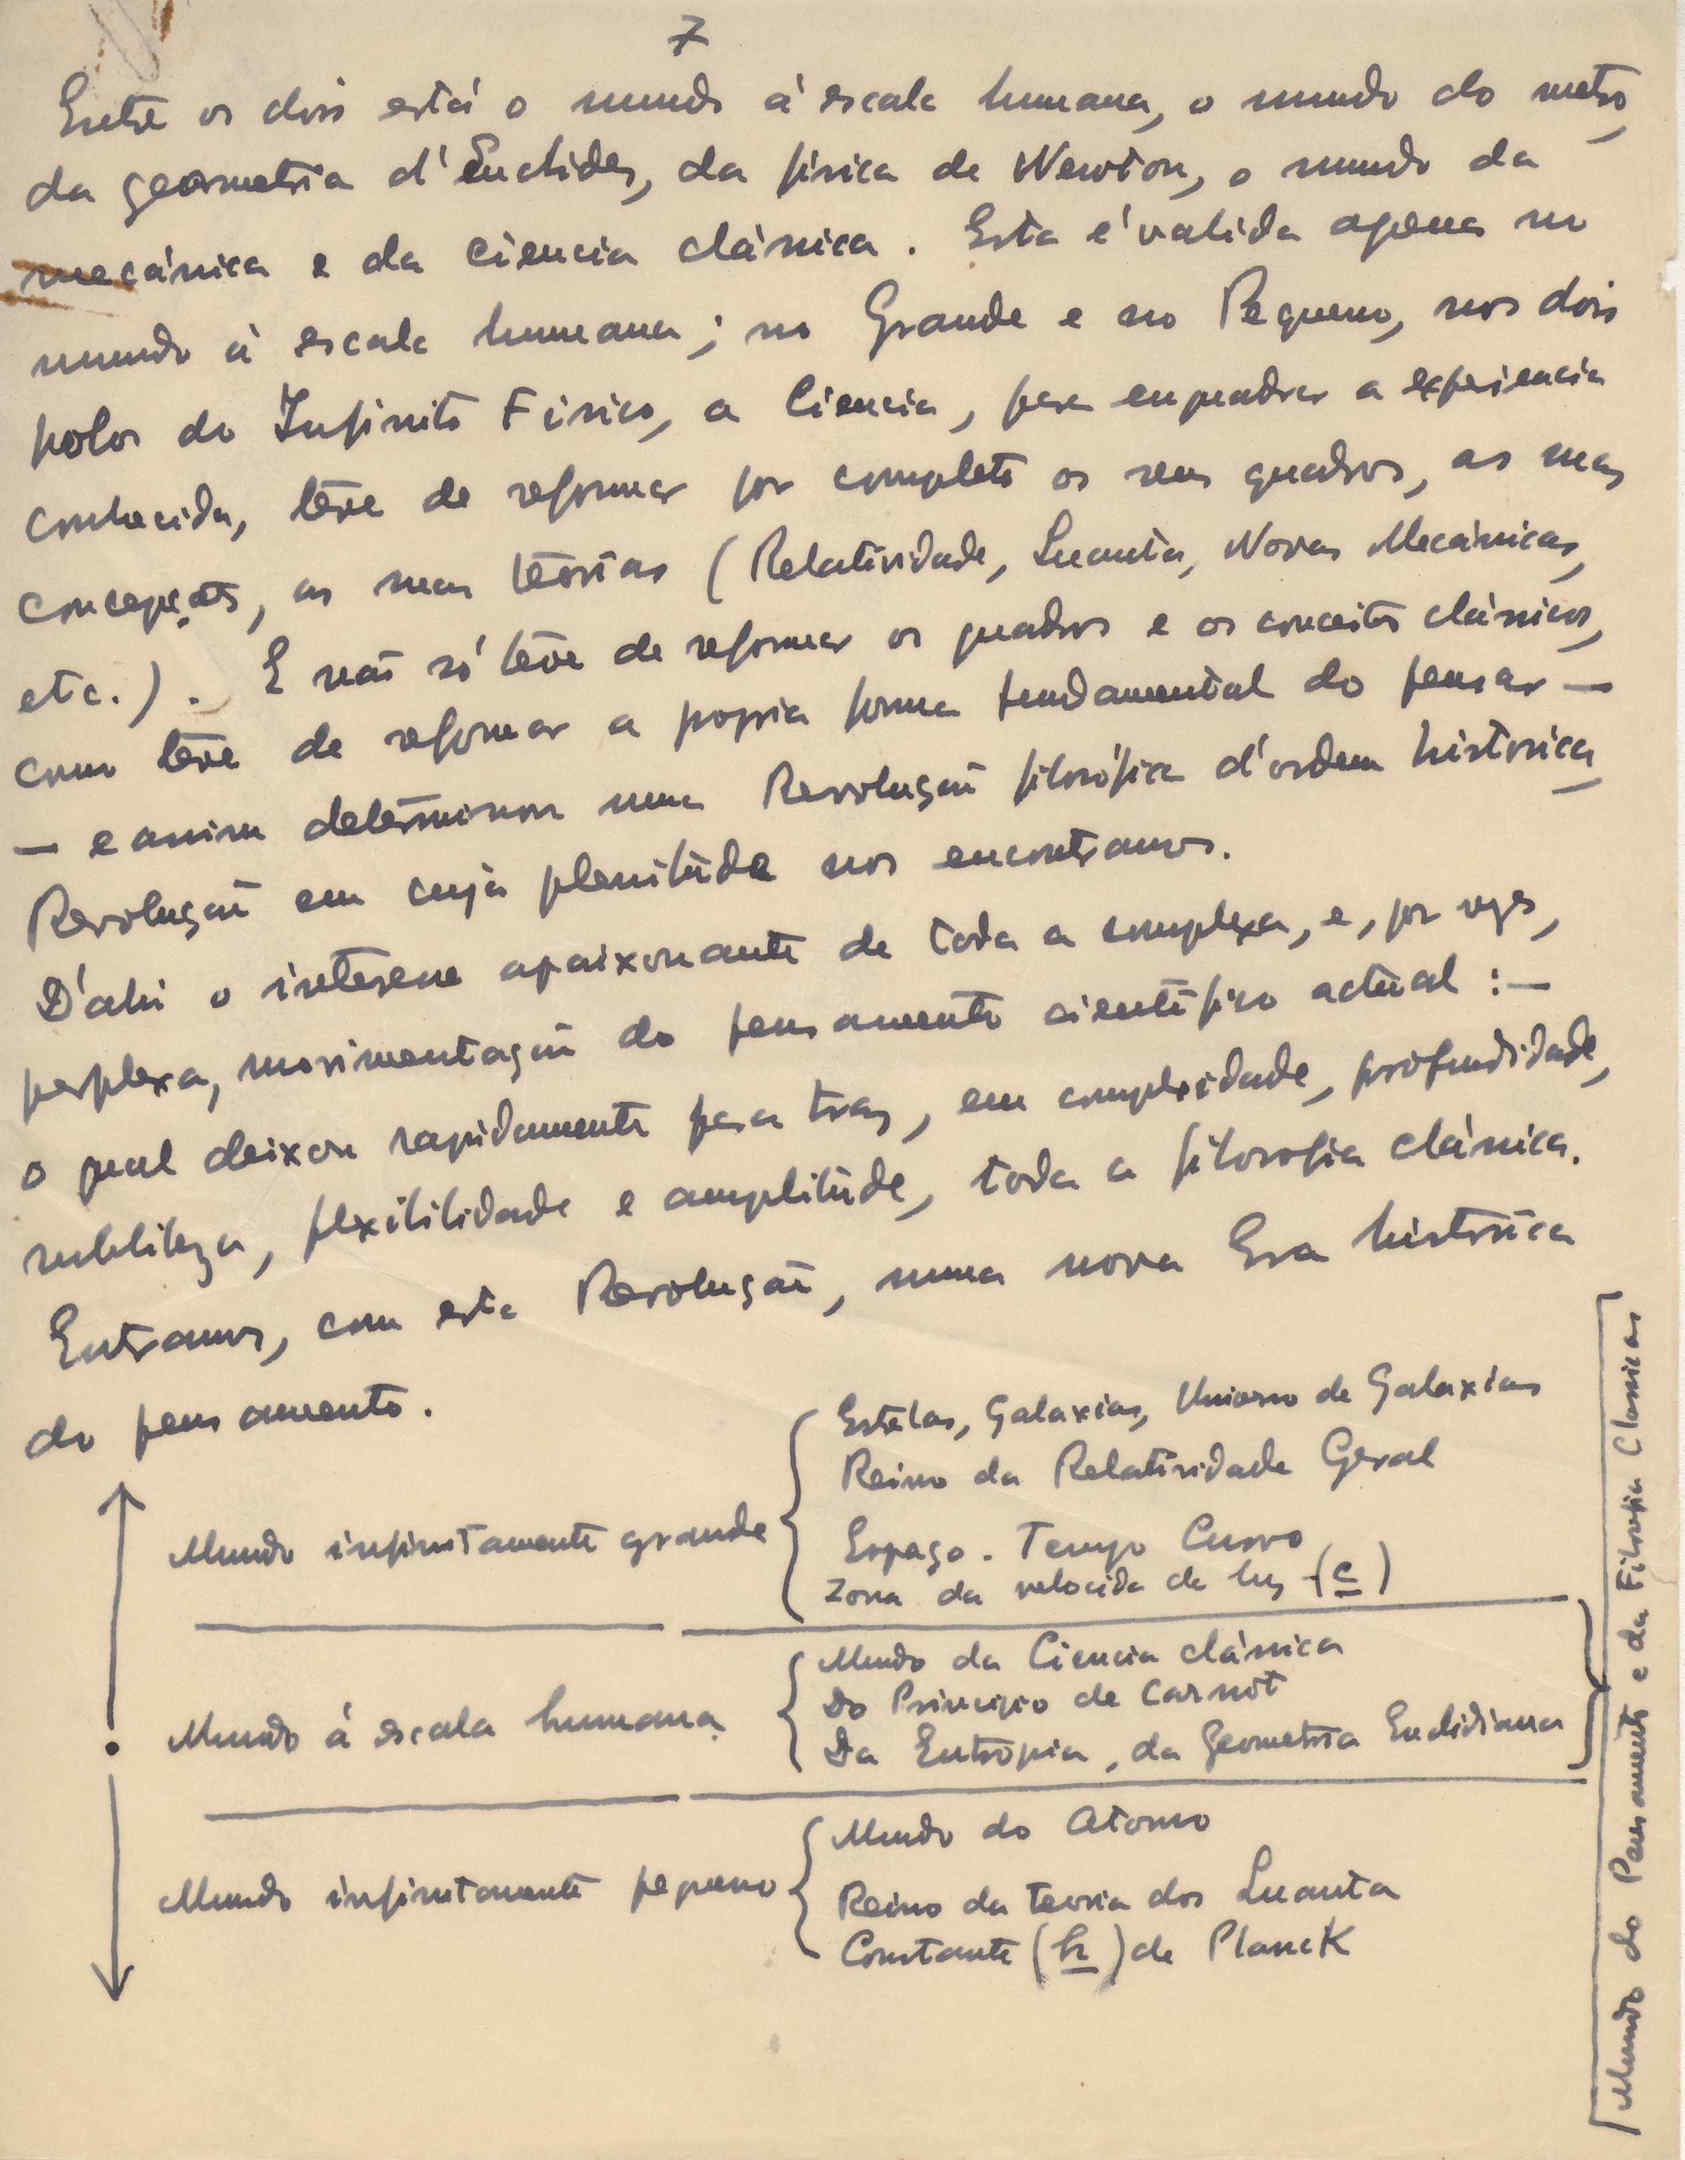 7
Entre os dois está o mundo á escala humana, o mundo do metro,
da geometria d'Euclides, da fisica de Newton, o mundo da
mecánica e da ciencia clássica. Esta é valida apenas no
mundo á escala humana; no Grande e no Pequeno, nos dois
polos do Infinito Fisico, a Ciencia, para enquadrar a experiencia
conhecida, teve de reformar por completo os seus quadros, as suas
concepções, as suas teorias (Relatividade, Quanta, Novas Mecánicas,
etc.). E não só teve de reformar os quadros e os conceitos clássicos,
como teve de reformar a propria forma fundamental do pensar —
— e assim determinou uma Revolução filosófica d'ordem historica,
Revolução em cuja plenitude nos encontramos.
D'ahi o interesse apaixonante de toda a complexa, e, por vezes,
perplexa, movimentação do pensamento cientifico actual :—
o qual deixou rapidamente para traz, em complexidade, profundidade,
subtileza, flexibilidade e amplitude, toda a filosofia clássica.
Entramos, com esta Revolução, numa nova Era historica
do pensamento.
Mundo infinitamente grande
Estrelas, Galaxias, Universo de Galaxias
Reino da Relatividade Geral
Espaço. Tempo Curvo
Zona da velocida de luz (c)
Mundo á escala humana
Mundo da Ciencia clássica
Do Principio de Carnot
Da Entropia, da Geometria Euclidiana
Mundo infinitamente pequeno
Mundo do Atomo
Reino da teoria dos Quanta
Constante (h) de Planck
Mundo do Pensamento e da Filosofia Classicas